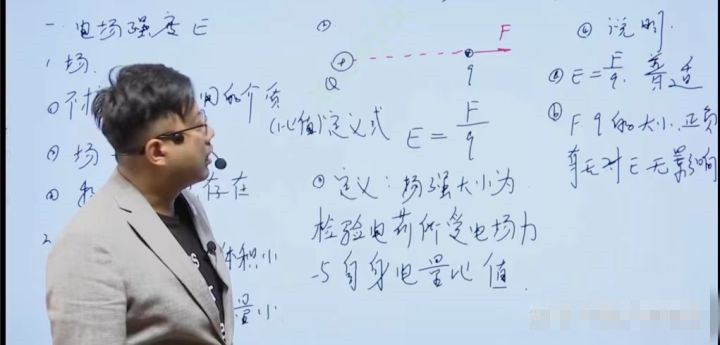 一 电场强度 E
1 场.
间的介质
场
存在
2
体积小
量小
Q
q
F
(比值)定义式 E = F/q
定义: 场强大小为
检验电荷所受电场力
与自身电量比值.
说明.
ⓐ E = F/q. 普适
ⓑ F. q 的大小.正负
有无对E无影响